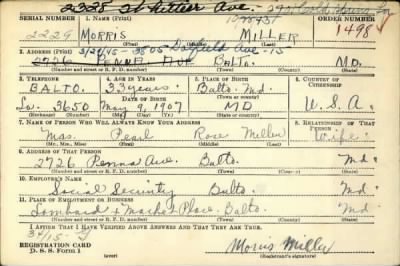 2328 Whittier Ave.
SERIAL NUMBER 1. NAME (Print) ORDER NUMBER
2229 MORRIS MILLER 1498
(First) (Middle) (Last)
2. ADDRESS (Print) 3/20/45 - 3805 Dolfield Ave - 15
2726 PENNA AVE BALTO. MD.
(Number and street or R. F. D. number) (Town) (County) (State)
3. TELEPHONE 4. AGE IN YEARS 5. PLACE OF BIRTH 6. COUNTRY OF CITIZENSHIP
BALTO. 33 years Balto. Md.
DATE OF BIRTH (Town or county)
La. 3650 May 9, 1907 MD U. S. A.
(Exchange) (Number) (Mo.) (Day) (Yr.) (State or country)
7. NAME OF PERSON WHO WILL ALWAYS KNOW YOUR ADDRESS 8. RELATIONSHIP OF THAT PERSON
Mrs. Pearl Rose Miller Wife
(Mr., Mrs., Miss) (First) (Middle) (Last)
9. ADDRESS OF THAT PERSON
2726 Penna Ave. Balto. Md
(Number and street or R. F. D. number) (Town) (County) (State)
10. EMPLOYER'S NAME
Social Security Balto. Md
11. PLACE OF EMPLOYMENT OR BUSINESS
Lombard + Market Place Balto. Md.
(Number and street or R. F. D. number) (Town) (County) (State)
I AFFIRM THAT I HAVE VERIFIED ABOVE ANSWERS AND THAT THEY ARE TRUE.
REGISTRATION CARD
D. S. S. Form 1 (over) Morris Miller
(Registrant's signature)